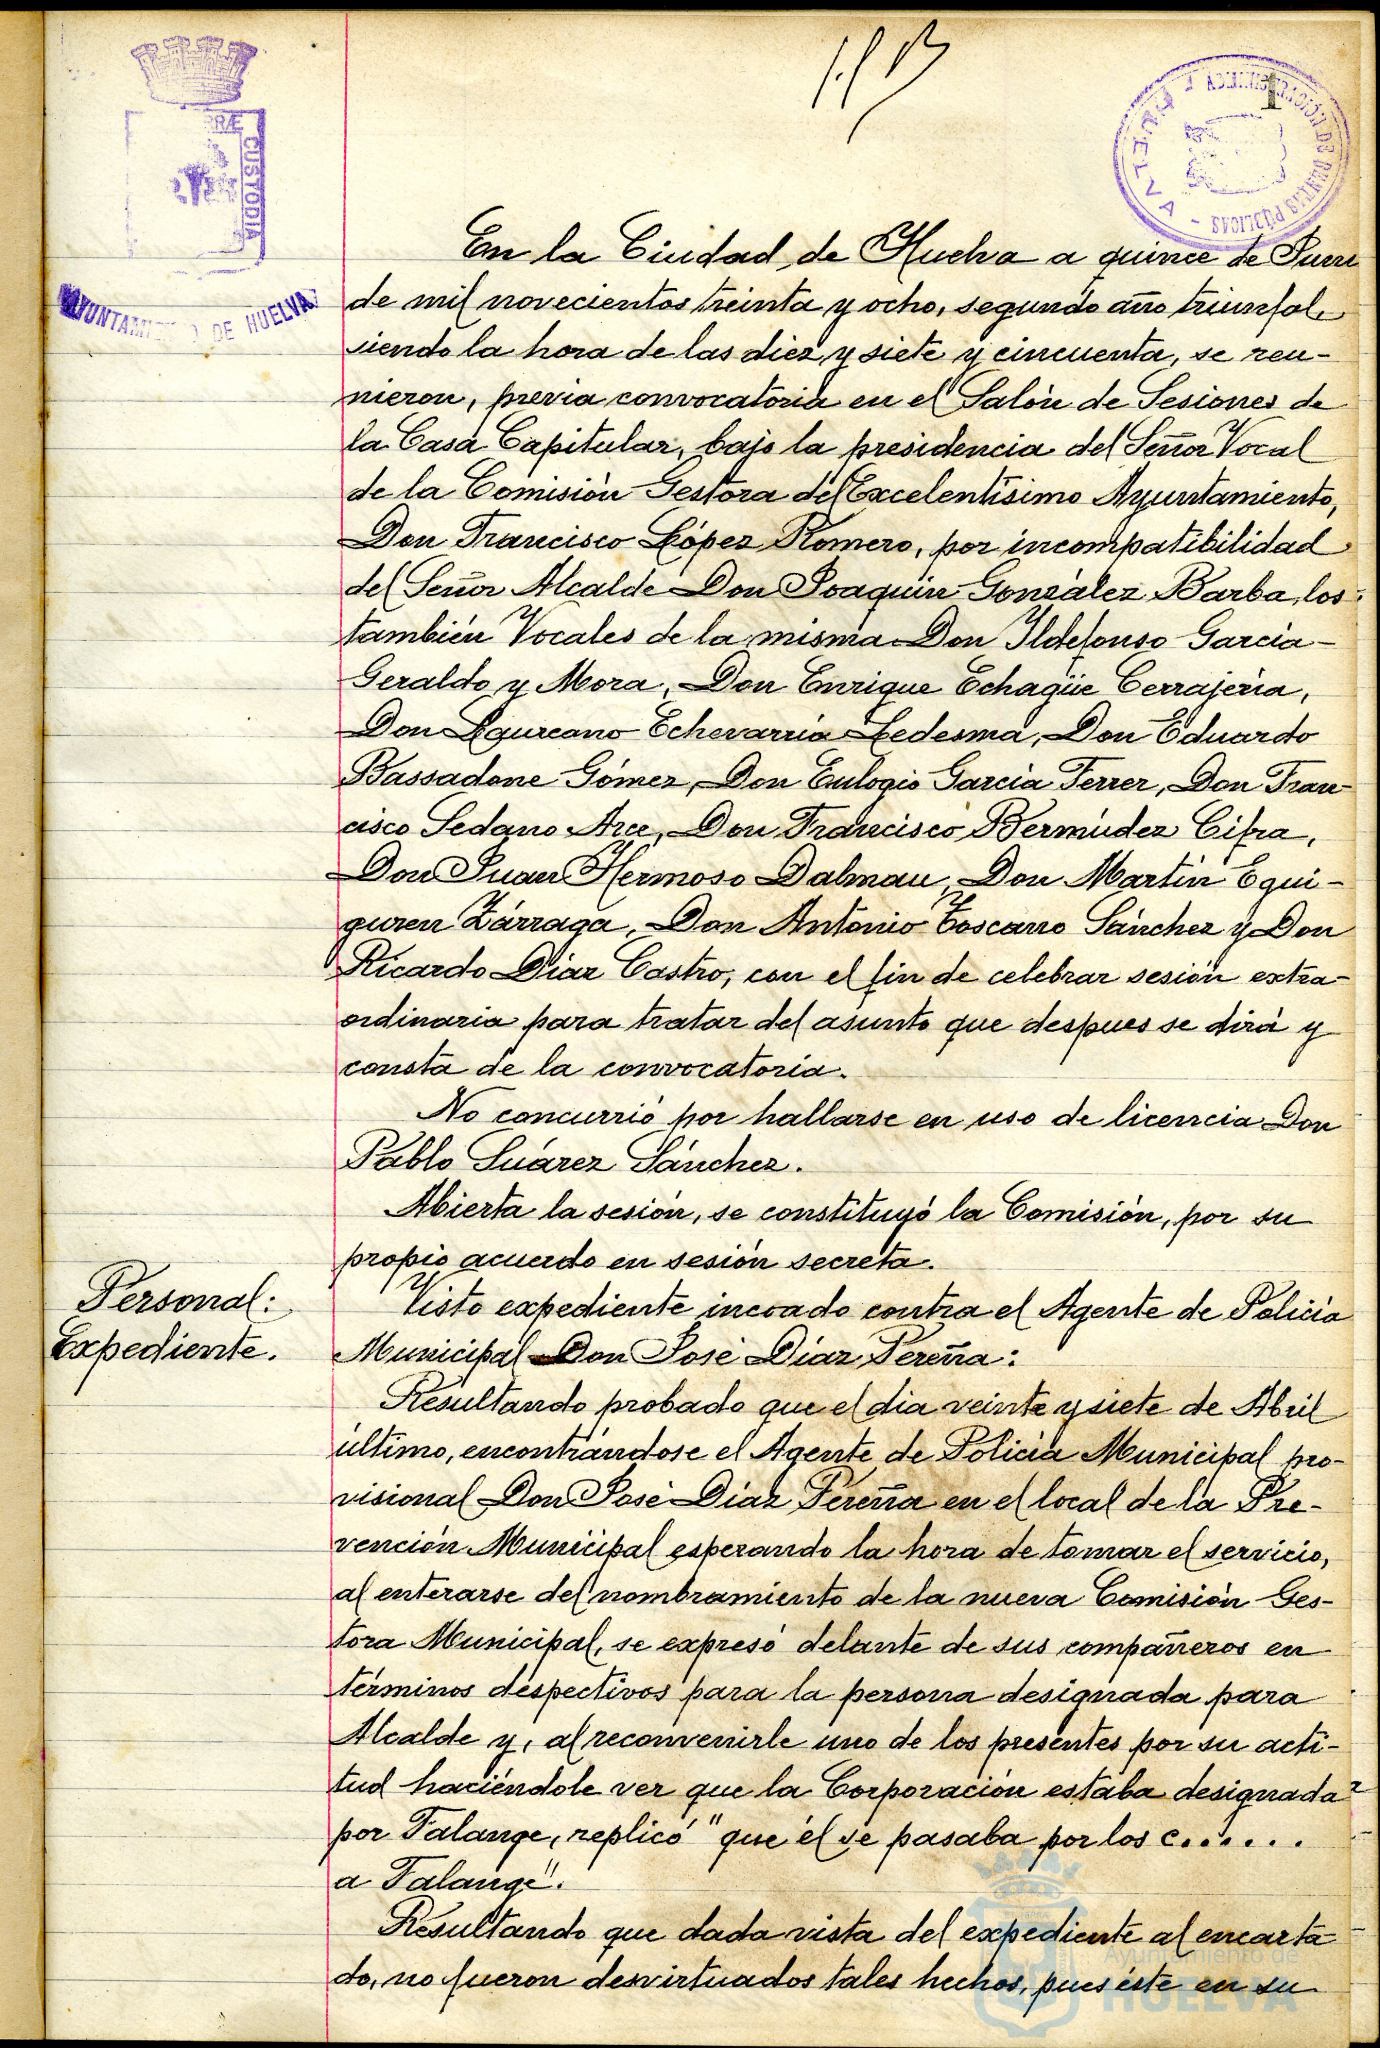 1
RÆ CUSTODIA
AYUNTAMIENTO DE HUELVA
HUELVA
En la Ciudad de Huelva a quince de Junio
de mil novecientos treinta y ocho, segundo año triunfal,
siendo la hora de las diez y siete y cincuenta, se reu-
nieron, previa convocatoria en el Salón de Sesiones de
la Casa Capitular, bajo la presidencia del Señor Vocal
de la Comisión Gestora del Excelentísimo Ayuntamiento,
Don Francisco López Romero, por incompatibilidad
del Señor Alcalde Don Joaquín González Barba, los
también Vocales de la misma Don Ildefonso García-
Geraldo y Mora, Don Enrique Echagüe Cerrajería,
Don Laureano Echevarría Ledesma, Don Eduardo
Bassadone Gómez, Don Eulogio García Ferrer, Don Fran-
cisco Sedano Arce, Don Francisco Bermúdez Cifra,
Don Juan Hermoso Dalmau, Don Martín Egui-
guren Zárraga, Don Antonio Toscano Sánchez y Don
Ricardo Díaz Castro, con el fin de celebrar sesión extra-
ordinaria para tratar del asunto que despues se dirá y
consta de la convocatoria.
No concurrió por hallarse en uso de licencia Don
Pablo Suárez Sánchez.
Abierta la sesión, se constituyó la Comisión, por su
propio acuerdo en sesión secreta.
Personal:
Expediente.
Visto expediente incoado contra el Agente de Policía
Municipal Don José Díaz Pereña:
Resultando probado que el dia veinte y siete de Abril
último, encontrándose el Agente de Policía Municipal pro-
visional Don José Díaz Pereña en el local de la Pre-
vención Municipal esperando la hora de tomar el servicio,
al enterarse del nombramiento de la nueva Comisión Ges-
tora Municipal, se expresó delante de sus compañeros en
términos despectivos para la persona designada para
Alcalde y, al reconvenirle uno de los presentes por su acti-
tud haciéndole ver que la Corporación estaba designada
por Falange, replicó "que él se pasaba por los c.......
a Falange".
Resultando que dada vista del expediente al encarta
do, no fueron desvirtuados tales hechos, pues éste en su
Ayuntamiento de
HUELVA